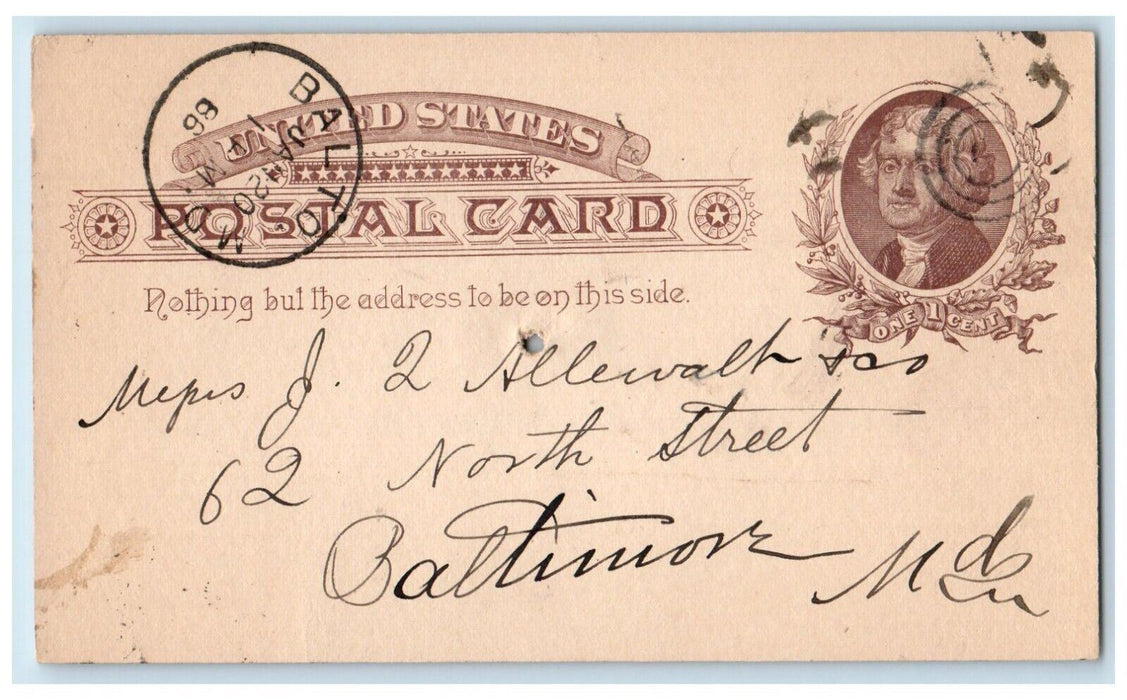 UNITED STATES
POSTAL CARD
Nothing but the address to be on this side.
ONE 1 CENT
BALTO. MD.
JAN 20
1
M.
Messrs J. Q Allewalt & Co
62 North Street
Baltimore
Md